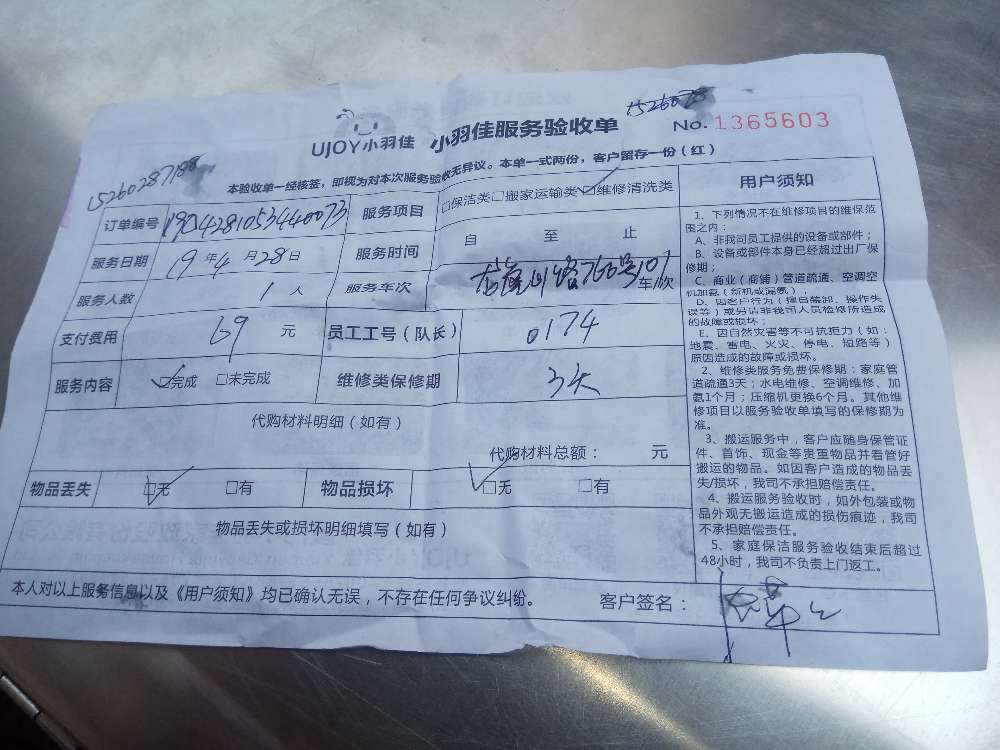 15260287188
UJOY小羽佳 小羽佳服务验收单
No.1365603
本验收单一经核签，即视为对本次服务验收无异议。本单一式两份，客户留存一份（红）
订单编号 服务项目 □保洁类□搬家运输类☑维修清洗类
服务日期 19年4月28日 服务时间 自 至 止
服务人数 1人 服务车次 路766号101 车/次
支付费用 69 元 员工工号（队长） 0174
服务内容 ☑完成 □未完成 维修类保修期 3天
代购材料明细（如有）
代购材料总额： 元
物品丢失 ☑无 □有 物品损坏 ☑无 □有
物品丢失或损坏明细填写（如有）
本人对以上服务信息以及《用户须知》均已确认无误，不存在任何争议纠纷。 客户签名：
用户须知
1、下列情况不在维修项目的维保范
围之内：
A、非我司员工提供的设备或部件；
B、设备或部件本身已经超过出厂保
修期；
C、商业（商铺）管道疏通、空调空
机加氨（新机或漏氨）；
D、因客户行为（擅自装卸、操作失
误等）或另请非我司人员检修所造成
的故障或损坏；
E、因自然灾害等不可抗拒力（如：
地震、雷电、火灾、停电、短路等）
原因造成的故障或损坏。
2、维修类服务免费保修期：家庭管
道疏通3天；水电维修、空调维修、加
氨1个月；压缩机更换6个月。其他维
修项目以服务验收单填写的保修期为
准。
3、搬运服务中，客户应随身保管证
件、首饰、现金等贵重物品并看管好
搬运的物品。如因客户造成的物品丢
失/损坏，我司不承担赔偿责任。
4、搬运服务验收时，如外包装或物
品外观无搬运造成的损伤痕迹，我司
不承担赔偿责任。
5、家庭保洁服务验收结束后超过
48小时，我司不负责上门返工。